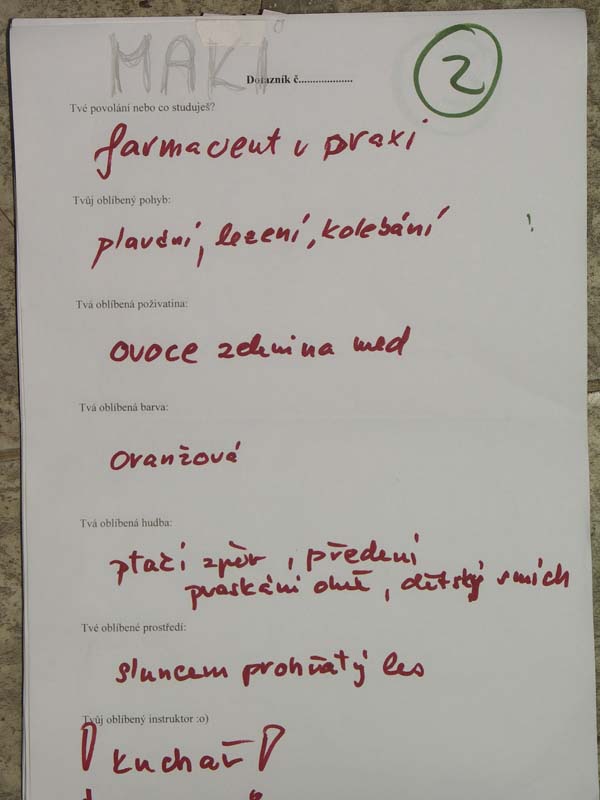 MAKI
Dotazník č...................
2
Tvé povolání nebo co studuješ?
farmaceut v praxi
Tvůj oblíbený pohyb:
plavání, lezení, kolébání
Tvá oblíbená poživatina:
ovoce zelenina med
Tvá oblíbená barva:
oranžová
Tvá oblíbená hudba:
ptačí zpěv, předení
praskání ohně, dětský smích
Tvé oblíbené prostředí:
sluncem prohřátý les
Tvůj oblíbený instruktor :o)
kuchař